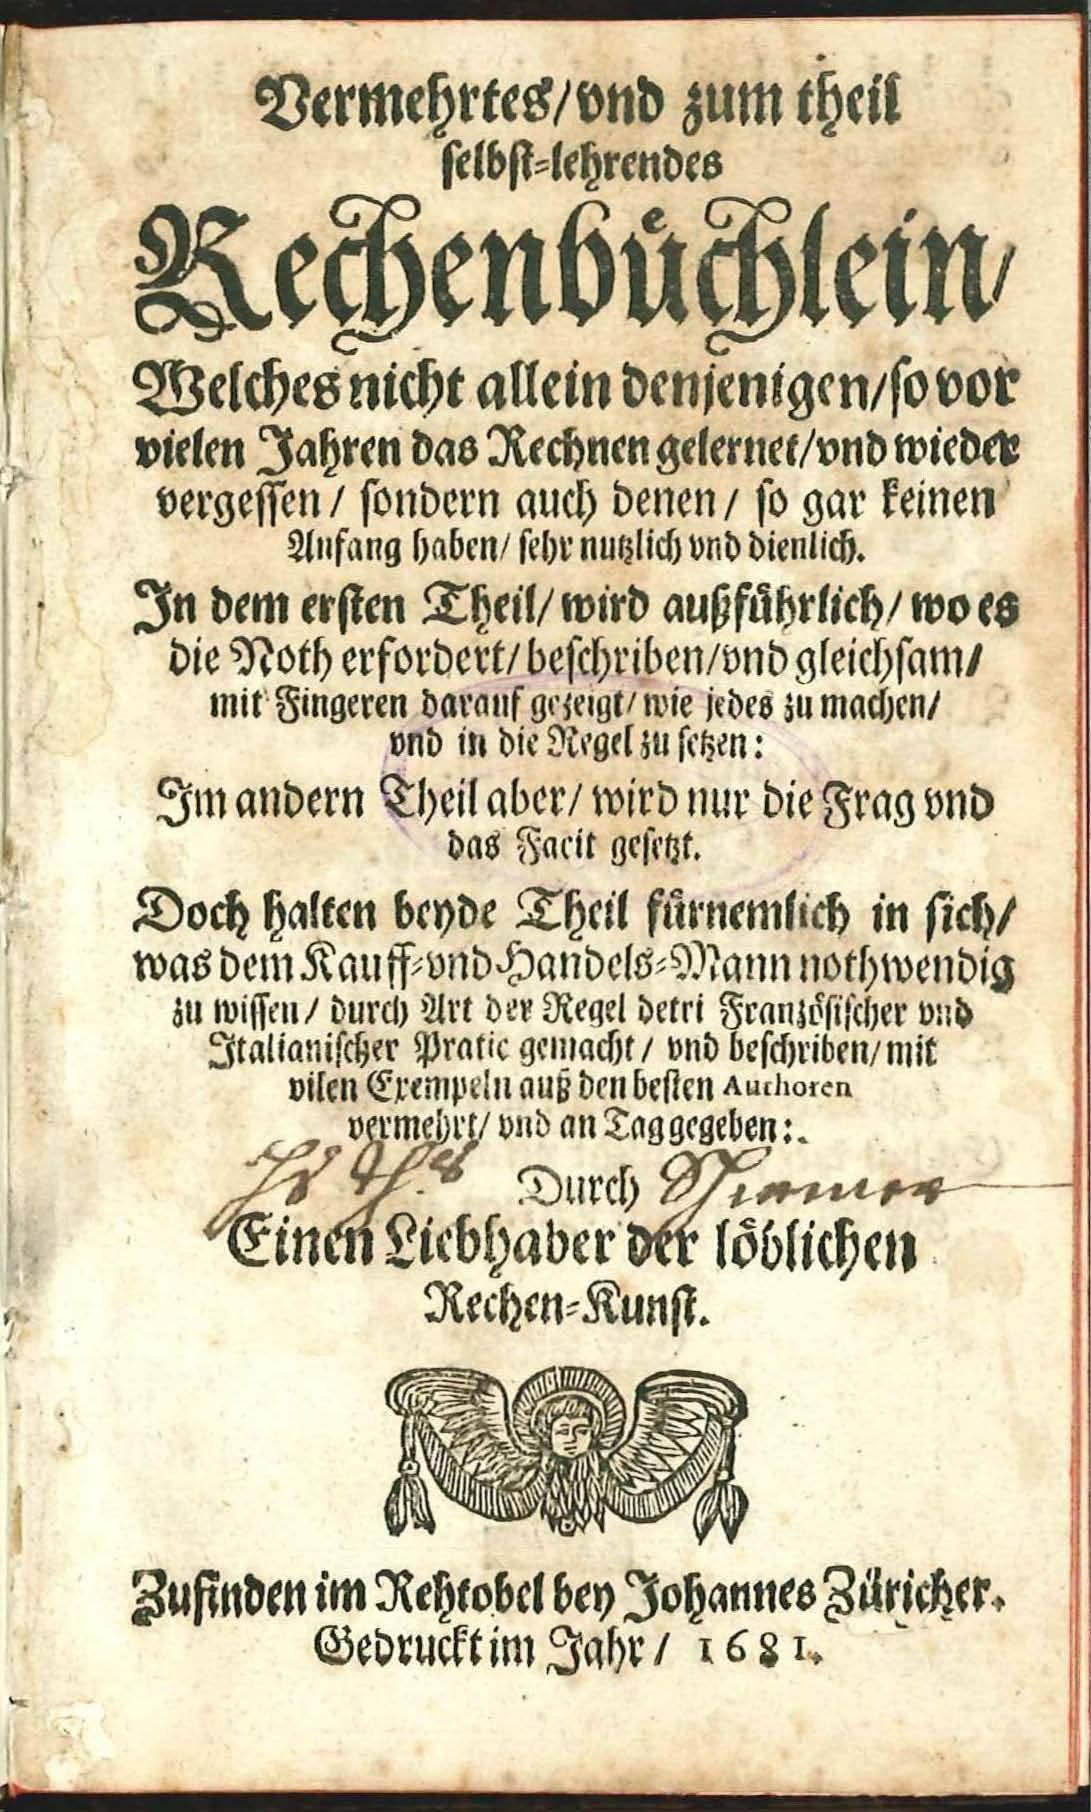 Vermehrtes/vnd zum theil
selbst-lehrendes
Rechenbüchlein/
Welches nicht allein denjenigen/so vor
vielen Jahren das Rechnen gelernet/vnd wieder
vergessen/ sondern auch denen/ so gar keinen
Anfang haben/ sehr nutzlich vnd dienlich.
In dem ersten Theil/ wird außführlich/ wo es
die Noth erfordert/ beschriben/vnd gleichsam/
mit Fingeren darauf gezeigt/ wie jedes zu machen/
vnd in die Regel zu setzen:
Im andern Theil aber/ wird nur die Frag vnd
das Facit gesetzt.
Doch halten beyde Theil fürnemlich in sich/
was dem Kauff-vnd Handels-Mann nothwendig
zu wissen/ durch Art der Regel detri Französischer vnd
Italianischer Pratic gemacht/ vnd beschriben/ mit
vilen Exempeln auß den besten Authoren
vermehrt/ vnd an Tag gegeben:.
Durch
Einen Liebhaber der löblichen
Rechen-Kunst.
Zufinden im Rehtobel bey Johannes Züricher.
Gedruckt im Jahr/ 1681.